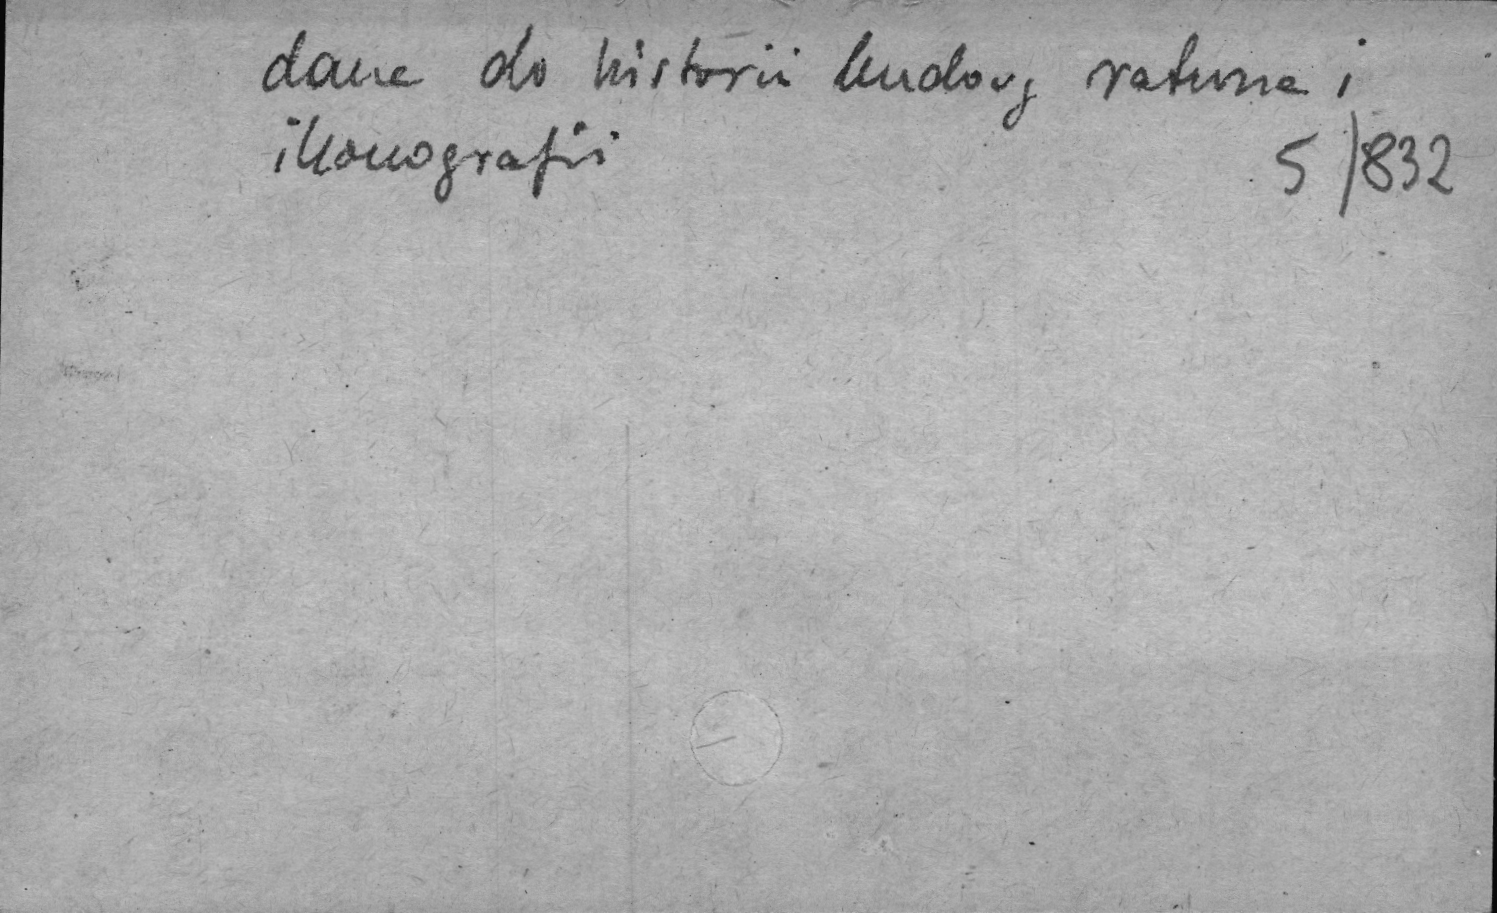 dane do historii budowy ratusza i
ikonografii 5/832